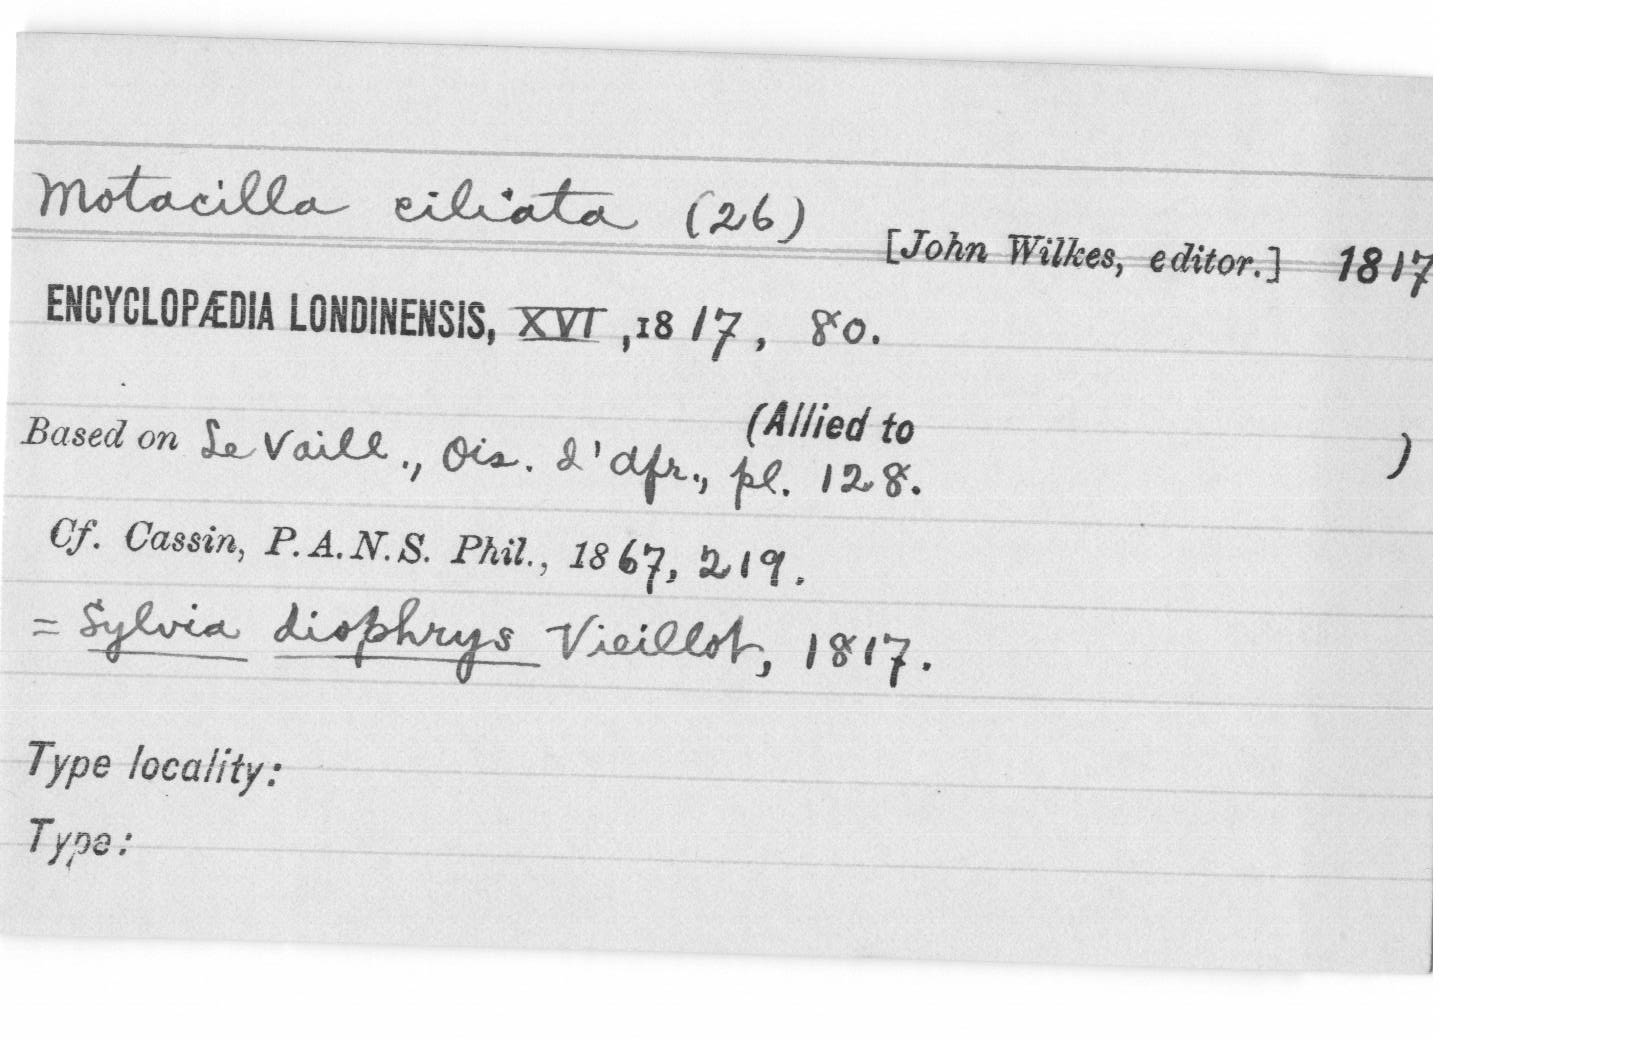 Motacilla ciliata (26)
[John Wilkes, editor.] 1817
ENCYCLOPÆDIA LONDINENSIS, XVI, 1817, 80.
(Allied to )
Based on Le Vaill., Ois. d'Afr., pl. 128.
Cf. Cassin, P.A.N.S. Phil., 1867, 219.
= Sylvia diophrys Vieillot, 1817.
Type locality:
Type: